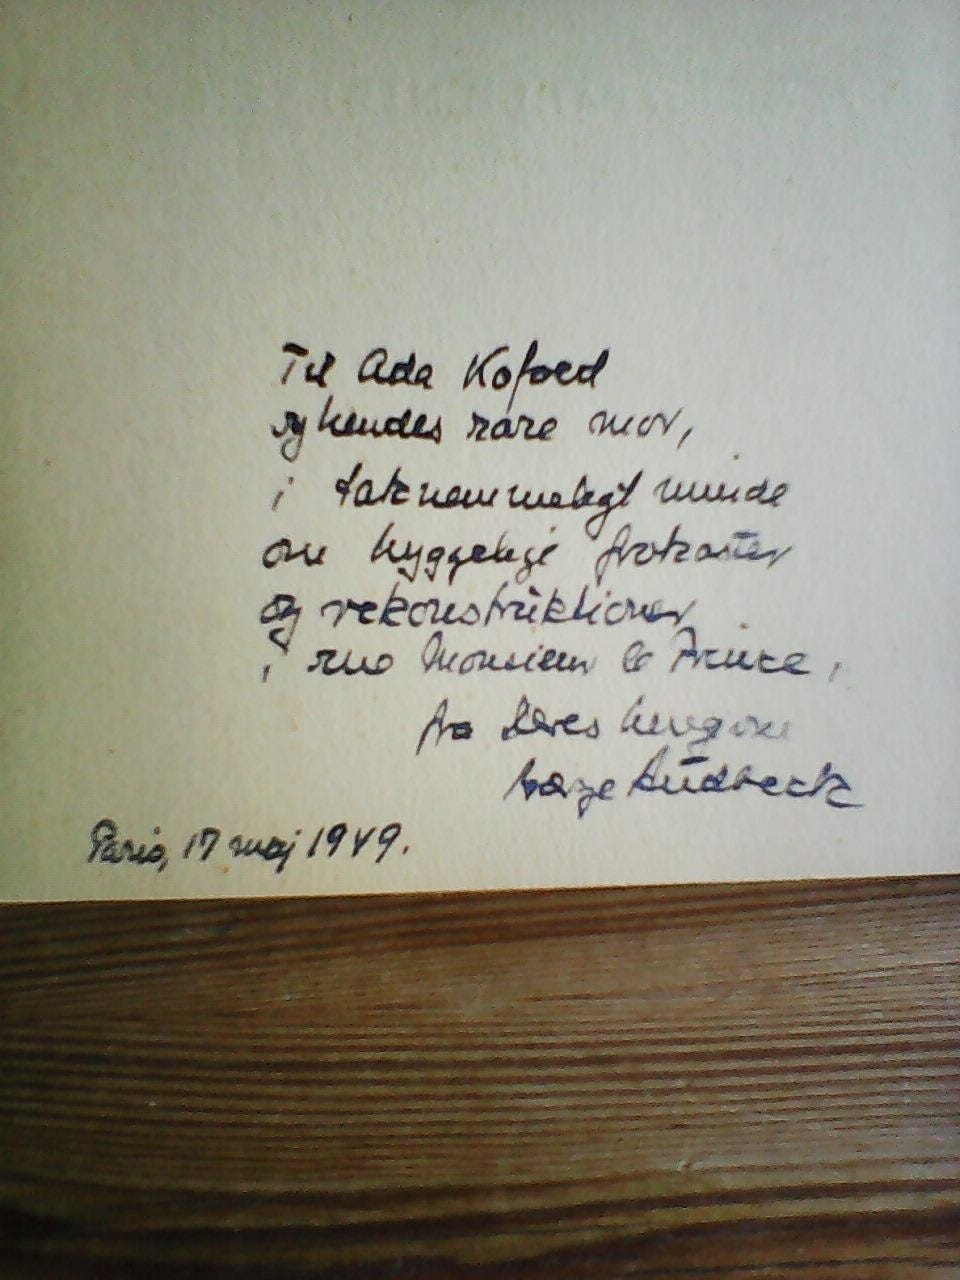 Til Ada Kofoed
og hendes rare mor,
i taknemmeligt minde
om hyggelige frokoster
og rekonstruktioner
i rue Monsieur le Prince,
fra Deres hengivne
Aage Dudbeck
Paris, 17 maj 1949.